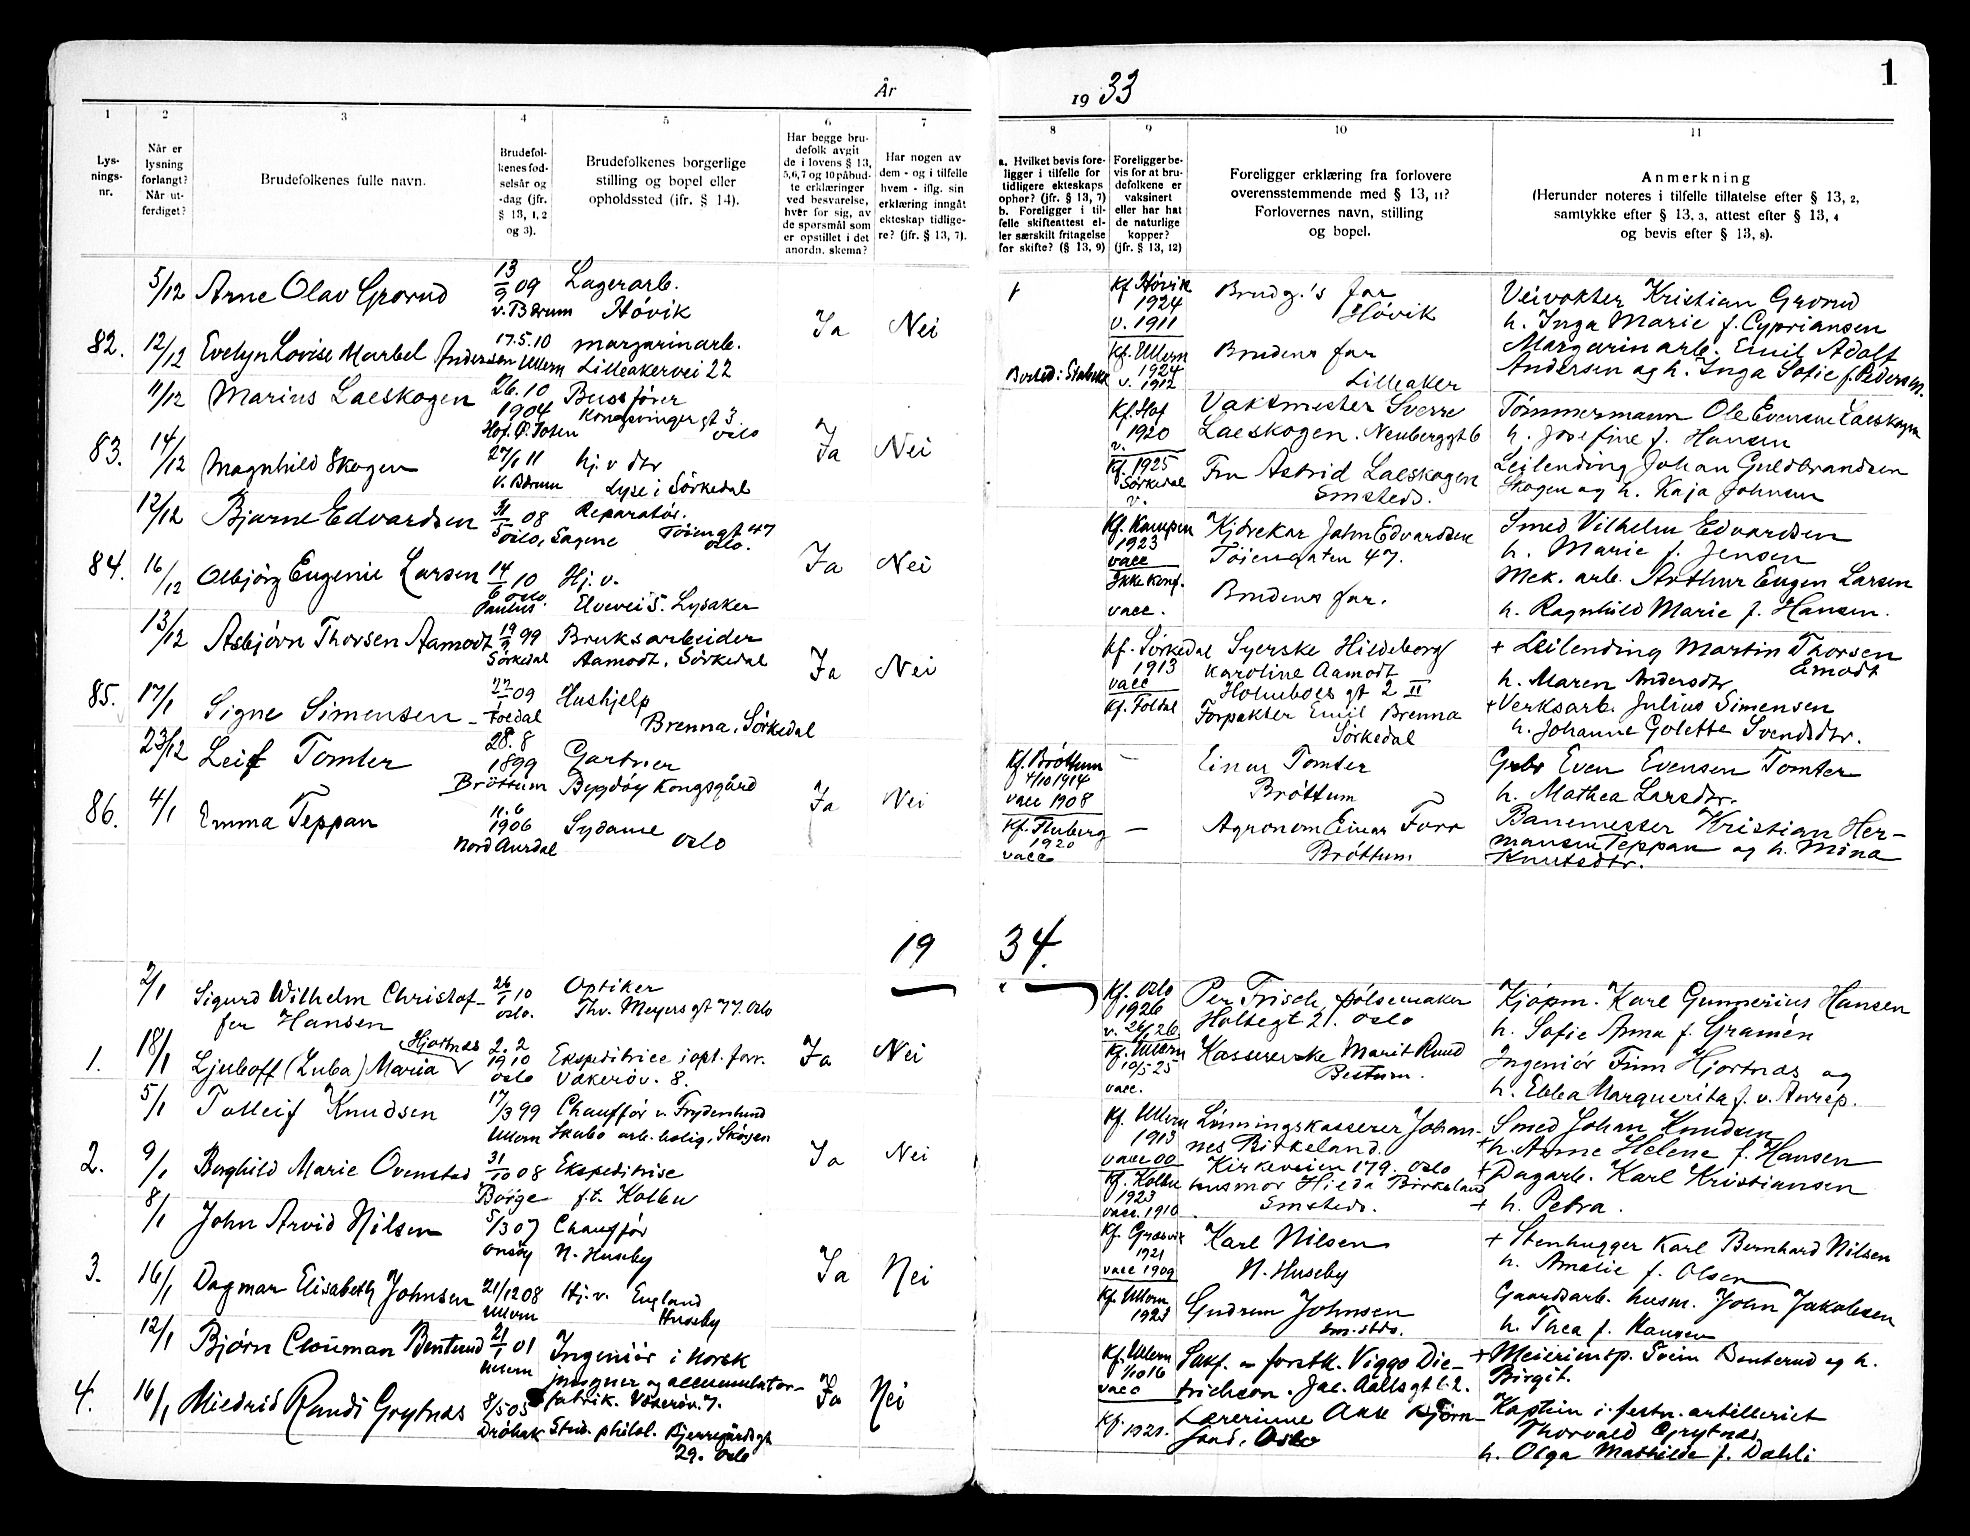 1
År
19 33
1
2
3
4
5
6
7
8
9
10
11
Lys-
nings-
nr.
Når er
lysning
forlangt?
Når ut-
ferdiget?
Brudefolkenes fulle navn.
Brudefol-
kenes fød-
selsår og
-dag (jfr.
§ 13, 1, 2
og 3).
Brudefolkenes borgerlige
stilling og bopel eller
opholdssted (jfr. § 14).
Har begge bru-
defolk avgit
de i lovens § 13,
5,6,7 og 10 påbud-
te erklæringer
ved besvarelse,
hver for sig, av
de spørsmål som
er opstillet i det
anordn. skema?
Har nogen av
dem - og i tilfelle
hvem - iflg. sin
erklæring inngåt
ekteskap tidlige-
re? (jfr. § 13, 7).
a. Hvilket bevis fore-
ligger i tilfelle for
tidligere ekteskaps
ophør? (jfr. § 13, 7)
b. Foreligger i til-
felle skifteattest el-
ler særskilt fritagelse
for skifte? (§ 13, 9)
Foreligger be-
vis for at bru-
defolkene er
vaksinert
eller har hat
de naturlige
kopper?
(jfr. § 13, 12)
Foreligger erklæring fra forlovere
overensstemmende med § 13, 11?
Forlovernes navn, stilling
og bopel.
Anmerkning
(Herunder noteres i tilfelle tillatelse efter § 13, 2,
samtykke efter § 13, 3, attest efter § 13, 4
og bevis efter § 13, 8).
82.
5/12 Arne Olav Grorud
13/9 09
v. Bærum
Lagerarb.
Høvik
Ja Nei
Kf Høvik
1924
v. 1911
Brudg.'s far
Høvik
Veivokter Kristian Grorud
h. Inga Marie f. Cypriansen
12/12 Evelyn Lovise Marbel Andersen
17.5.10
Ullern
margarinarb.
Lilleakervei 22
Bosted: Stabekk
Kf. Ullern
1924
v. 1912
Brudens far
Lilleaker
Margarinarb. Emil Adolf
Andersen og h. Inga Sofie f. Pedersen.
83.
11/12 Marius Laeskogen
26.10
1904
Hof. Ø. Toten
Bussfører
Kongsvingergt 3.
Oslo
Ja Nei
Kf. Hof
1920
v.
Vaktmester Sverre
Laeskogen. Neuberggt 6
Tømmermann Ole Evensen Laeskogen
h. Josefine f. Hansen
14/12 Magnhild Skogen
27/1 11
V. Bærum
hj. v dtr
Lyse i Sørkedal
Kf. 1925
Sørkedal
v.
Fru Astrid Laeskogen
Smsteds.
Leilending Johan Guldbrandsen
Skogen og h. Kaja Johnsen
84.
12/12 Bjarne Edvardsen
31/1 08
Oslo, Sagene
Reparatør.
Tøiengt 47
Oslo.
Ja Nei
Kf. Kampen
1923
vacc
Kjørekar John Edvardsen
Tøiengaten 47.
Smed Vilhelm Edvardsen
h. Marie f. Jensen
16/12 Olbjørg Eugenie Larsen
14/6 10
Oslo
Paulus.
Hj. v.
Elvevei 5. Lysaker
Ikke konf.
vacc.
Brudens far.
Mek. arb. Arthur Eugen Larsen
h. Ragnhild Marie f. Hansen.
85.
13/12 Asbjørn Thorsen Aamodt
19/9 99
Sørkedal
Bruksarbeider
Aamodt, Sørkedal
Ja Nei
Kf. Sørkedal
1913
vacc
Syerske Hildeborg
Karoline Aamodt
Holmboes gt 2 II
+ Leilending Martin Thorsen
Emodt
h. Maren Andersdtr
17/1 Signe Simensen
22/1 09
Foldal
Hushjelp
Brenna, Sørkedal
Kf. Foldal
Forpakter Emil Brenna
Sørkedal
+ Verksarb. Julius Simensen
h. Johanne Golette Svendsdtr.
86.
23/12 Leif Tomter
28.8
1899
Brøttum
Gartner
Bygdøy Kongsgård
Ja Nei
Kf. Brøttum
4/10 1914
vacc 1908
—
Einar Tomter
Brøttum
Grbr Even Evensen Tomter
h. Mathea Larsdtr.
4/1 Emma Teppan
11.6
1906
Nord Aurdal
Sydame
Oslo
Kf. Fluberg
1920
vacc
—
Agronom Einar Forr
Brøttum
Banemester Kristian Her-
mansen Teppan og h. Mina
Knutsdtr.
19 34.
1.
2/1 Sigurd Wilhelm Christof-
fer Hansen
26/1 10
Oslo.
Optiker
Thv. Meyersgt 77. Oslo
Ja Nei
Kf. Oslo
1926
v. 26/1 26.
Per Frisch, pølsemaker
Holtegt 21. Oslo
Kjøpm. Karl Gunnerius Hansen
h. Sofie Anna f. Gramén
18/1 Ljuboff (Luba) Maria Hjortnæs
2.2
1910
Oslo
Ekspeditrice i opt. forr.
Vækerøv. 8.
Kf. Ullern
10/5 25
vacc.
Kassererske Marit Ruud
Bestum.
Ingeniør Finn Hjortnæs og
h. Ebba Marguerita f. v. Anrep.
2.
5/1 Tolleif Knudsen
17/3 99
Ullern
Chauffør v. Frydenlund
Skabo arb. bolig, Skøyen
Ja Nei
Kf. Ullern
1913
vacc 00
Lønningskasserer Johan-
nes Birkeland.
Kirkeveien 179. Oslo
Smed Johan Knudsen
+ h. Anne Helene f. Hansen
9/1 Borghild Marie Ovenstad
31/10 08
Borge
Ekspeditrise
f.t. Kolbu
Kf. Kolbu
1923
vacc. 1910
husmor Hilda Birkeland
Smsteds.
+ Dagarb. Karl Kristiansen
+ h. Petra.
3.
8/1 John Arvid Nilsen
5/3 07
Onsøy
Chauffør
N. Huseby
Ja Nei
Kf. Gressvik
1921
vacc 1909
Karl Nilsen
N. Huseby
+ Stenhugger Karl Bernhard Nilsen
h. Amalie f. Olsen
16/1 Dagmar Elisabeth Johnsen
21/12 08
Ullern
Hj. v. England
Huseby
Kf. Ullern
1923
Gudrun Johnsen
sm.stds.
Gaardsarb. husm. John Jakobsen
h. Thea f. Hansen
4.
12/1 Bjørn Clouman Benterud
21/1 01
Ullern
Ingeniør i Norsk
jungner og accumulator-
fabrik. Vækerøv. 7.
Ja Nei
Kf. Ullern
1/10 16
vacc
Sakf. forstk. Viggo Die-
trichson. Jac. Aallsgt 12.
+ Meieriinsp. Svein Benterud og h.
Birgit.
16/1 Mildrid Randi Grytnæs
8/5 05
Drøbak
Stud. philol. Bjerregårdsgt
29. Oslo
Kf.
1921.
Lærerinne Åse Bjørn-
sand, Oslo
Kaptein i festn. artilleriet
Thorvald Grytnæs
h. Olga Mathilde f. Dahli